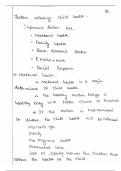 Factors affecting child health.
Important factors are
• Maternal health
• Family health
• Socio Economic factor
• Environment
• Social Support
Maternal health
• Maternal health is a major
determinants of child health
• The healthy mother brings a
healthy baby with better chance of survival
• If the mother is malnutrition
or disease the child health will be retarded
Maternal age
Parity
The Pregnancy health
Antenatal care
affect the health of the child